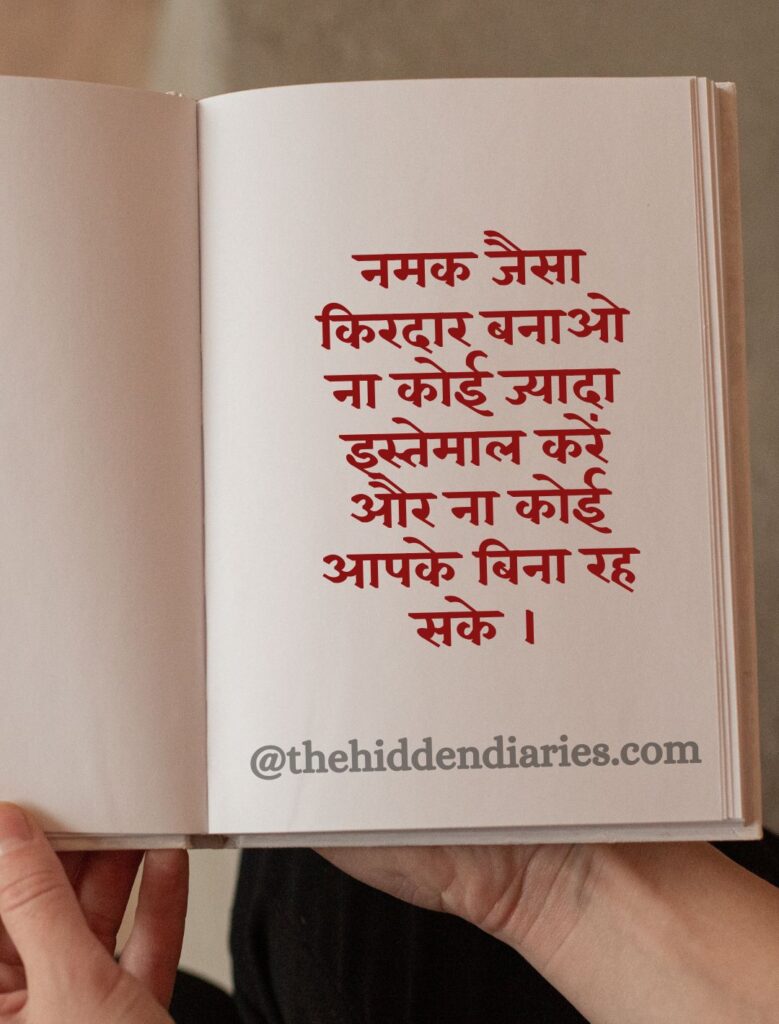 नमक जैसा
किरदार बनाओ
ना कोई ज्यादा
इस्तेमाल करें
और ना कोई
आपके बिना रह
सके ।
@thehiddendiaries.com